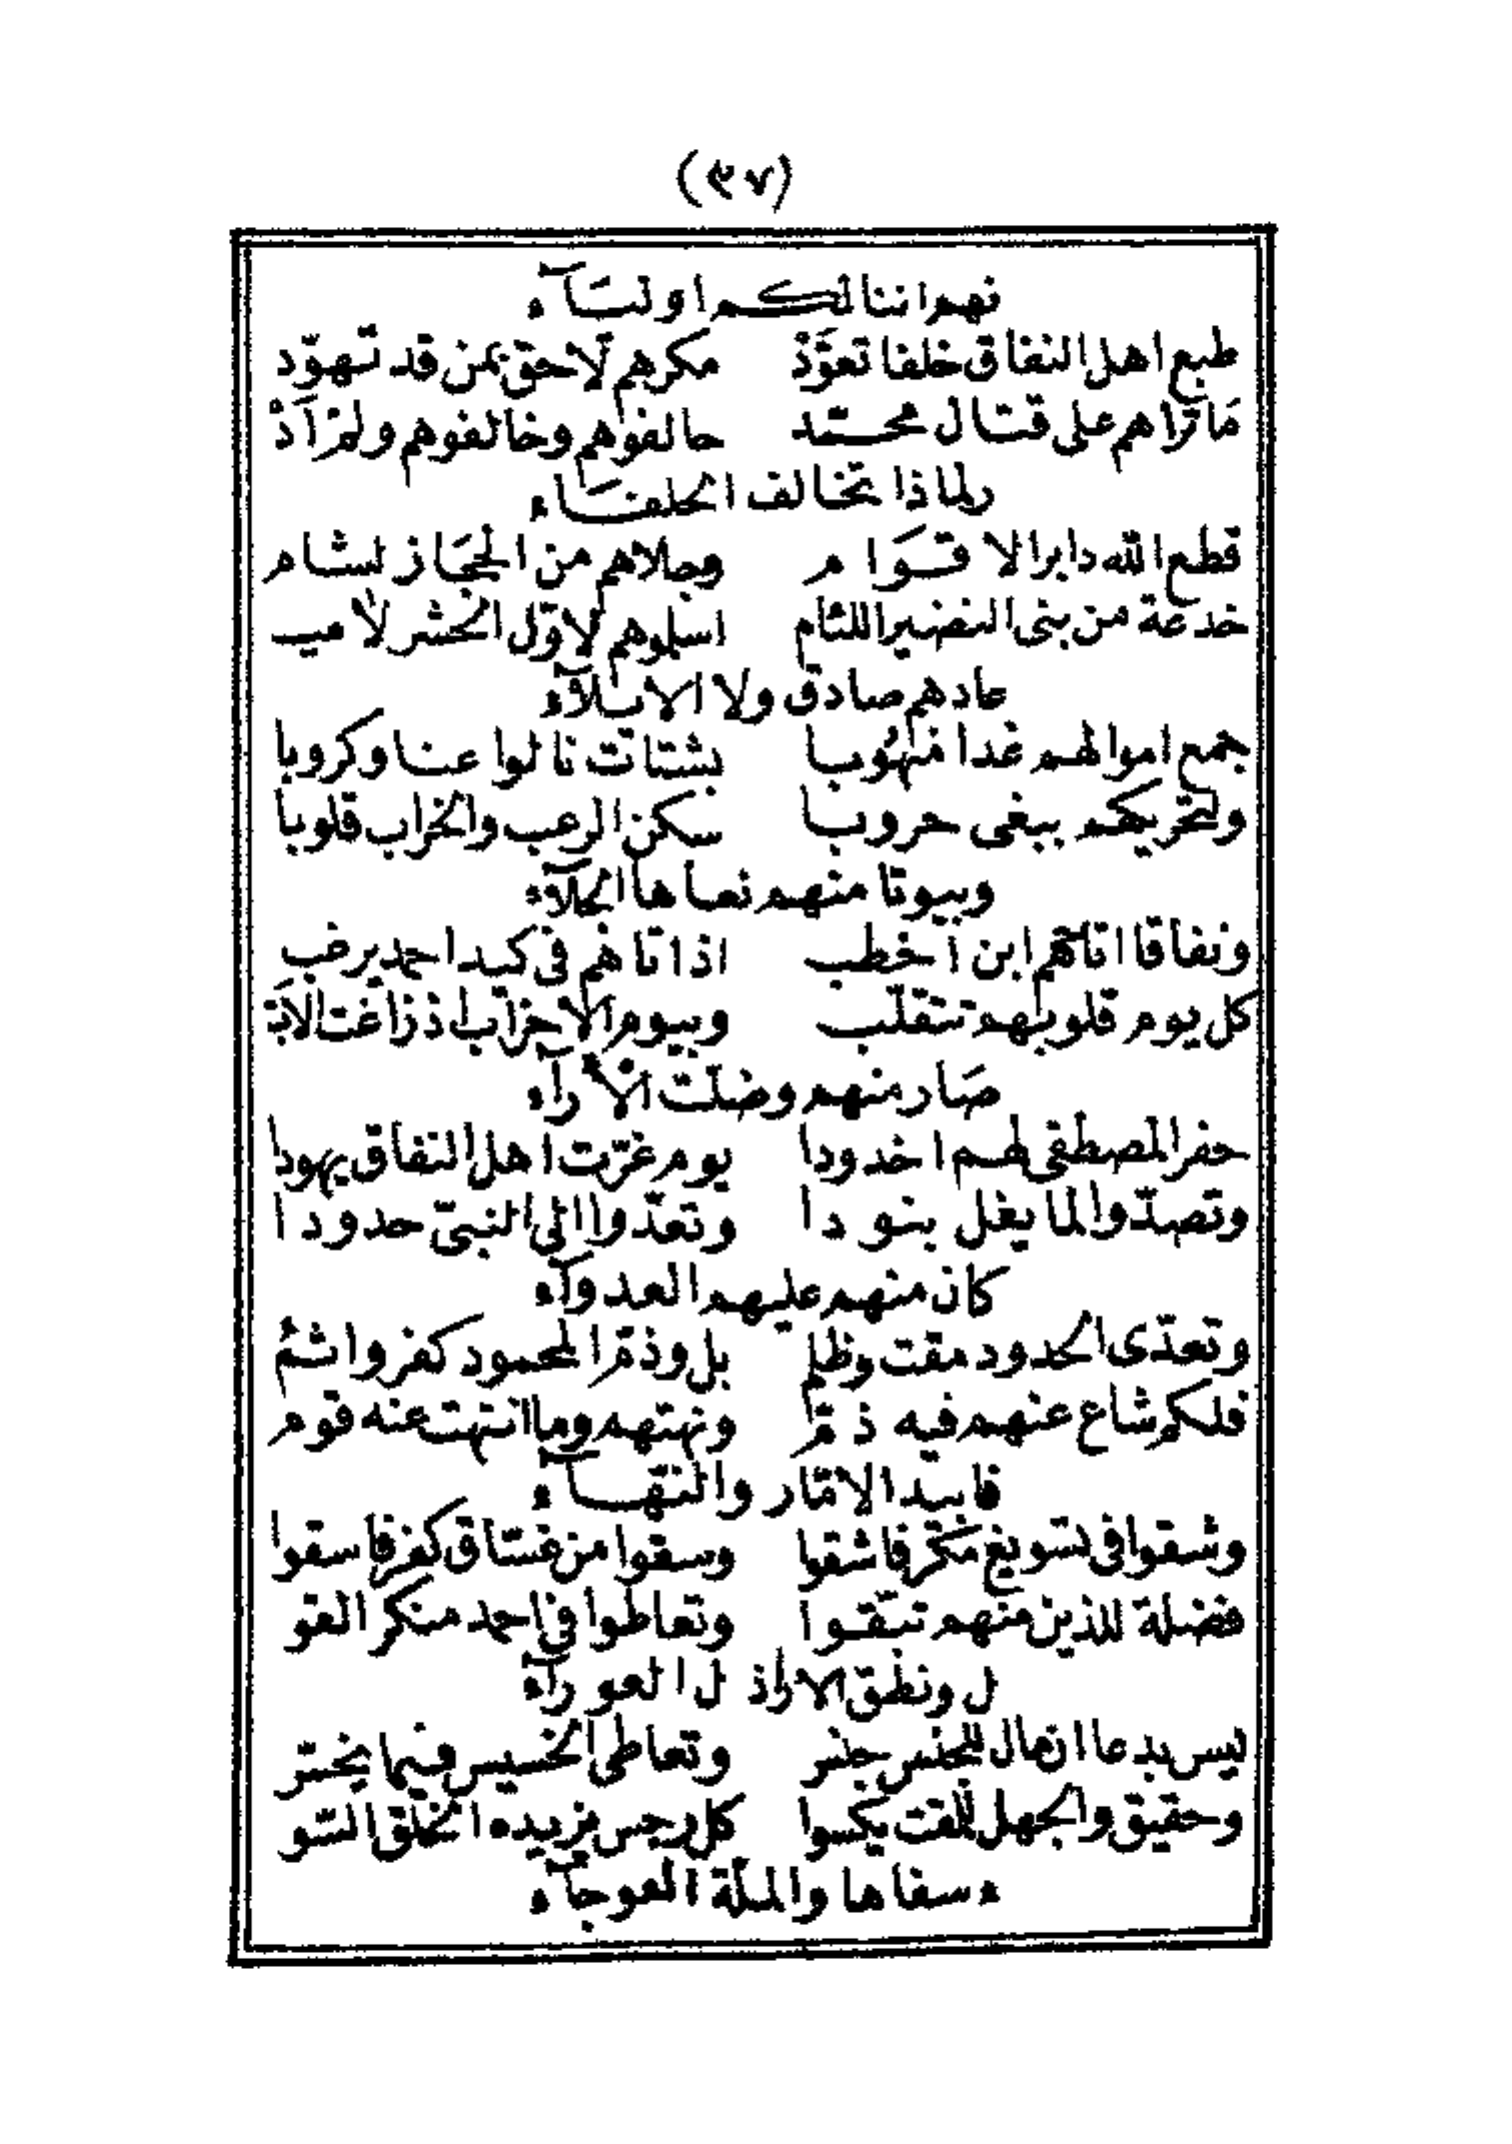 (٣٧)
نهم اننا لكم اوليآء
طبع اهل النفاق خلفا تعوَّذْ مكرهم لاحق بمن قد تهوّد
ما تراهم على قتال محمّد حالفوهم وخالفوهم ولم أَدْ
ر لماذا تخالف الحلفاء
قطع الله دابر الاقوام وجلاهم من الحجاز لشام
خدعة من بنى النضير اللئام اسلموهم لاوّل الحشر لا ميـ
عادهم صادق ولا الايلآء
جمع اموالهم غدا منهوبا بشتات نالوا عنا وكروبا
ولتحريكهم ببغى حروبا سكن الرعب والخراب قلوبا
وبيوتا منهم نعاها الجلآء
ونفاقا اتاهم ابن اخطب اذ اتاهم فى كيد احمد يرغب
كل يوم قلوبهم تتقلّب وبيوم الاحزاب اذ زاغت الابـ
صار منهم وضلّت الآرآء
حفر المصطفى لهم اخدودا يوم غرّت اهل النفاق يهودا
وتصدّوا لما يغل بنودا وتعدّوا الى النبىّ حدودا
كان منهم عليهم العدوآء
وتعدّى الحدود مقت وظلم بل وذمّ المحمود كفر واثم
فلكم شاع عنهم فيه ذمّ ونهتهم وما انتهت عنه قوم
فابيد الامّار والنهّآء
وشقوا فى تسويغ مكر فاشقوا وسقوا من فسّاق كفر فاسقوا
فضلة للذين منهم تبقّوا وتعاطوا فى احمد منكر القو
ل ونطق الاراذل العورآء
ليس بدعا ان مال للجنس جنس وتعاطى الخسيس فيما يخسّ
وحقيق والجهل للمقت يكسوا كل رجس يزيده الخلق السّو
ء سفاها والملّة العوجآء